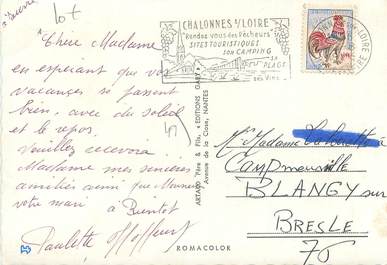 lot
CHALONNES S/LOIRE
"Rendez vous des Pêcheurs"
SITES TOURISTIQUES
SON CAMPING
SA
PLAGE
SES VINS
Chère Madame
en espérant que vos
vacances se passent
bien, avec du soleil
et le repos.
Veuillez recevoir
Madame mes sincères
amitiés ainsi que Monsieur
votre mari à Bientôt
Paulette
ARTAUD Père & Fils, EDITIONS GABY
Avenue de la Close, NANTES
Madame
BLANGY sur
BRESLE
76
ROMACOLOR